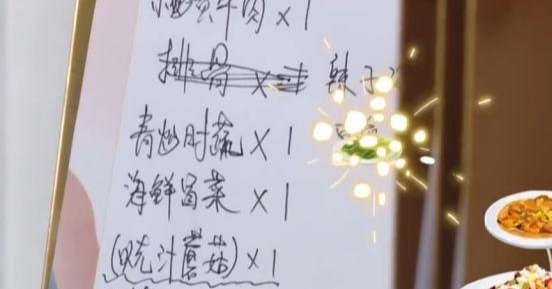 牛肉×1
排骨×1 辣子
青炒时蔬×1
海鲜冒菜×1
(咣汁蘑菇)×1